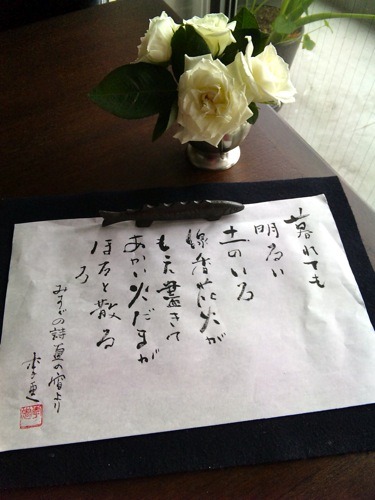 暮れても
明るい
土のいろ
線香花火が
もえ盡きて
あかい火だまが
ほろと散る
ろ
みすゞの詩夏の宵より